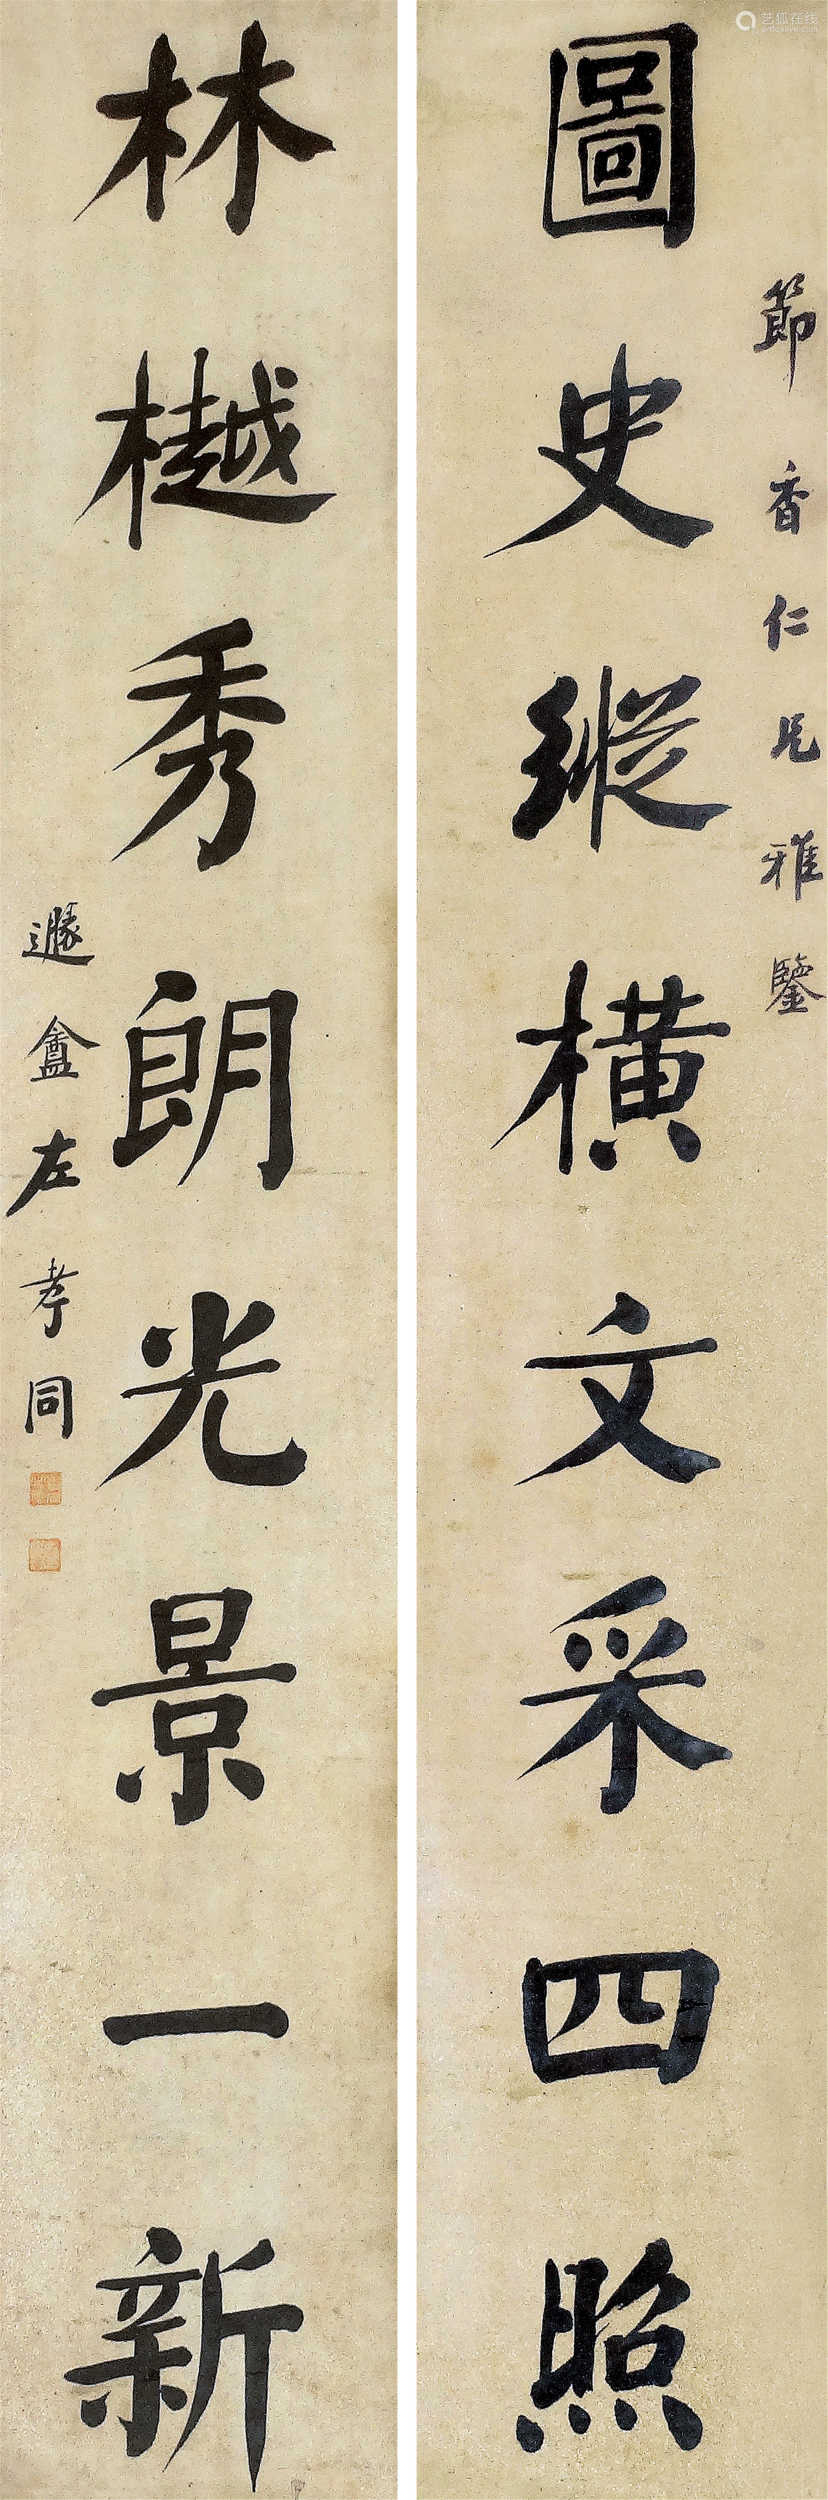 節香仁兄雅鑒
圖史縱橫文采四照
林樾秀朗光景一新
遯盦左孝同
艺狐在线